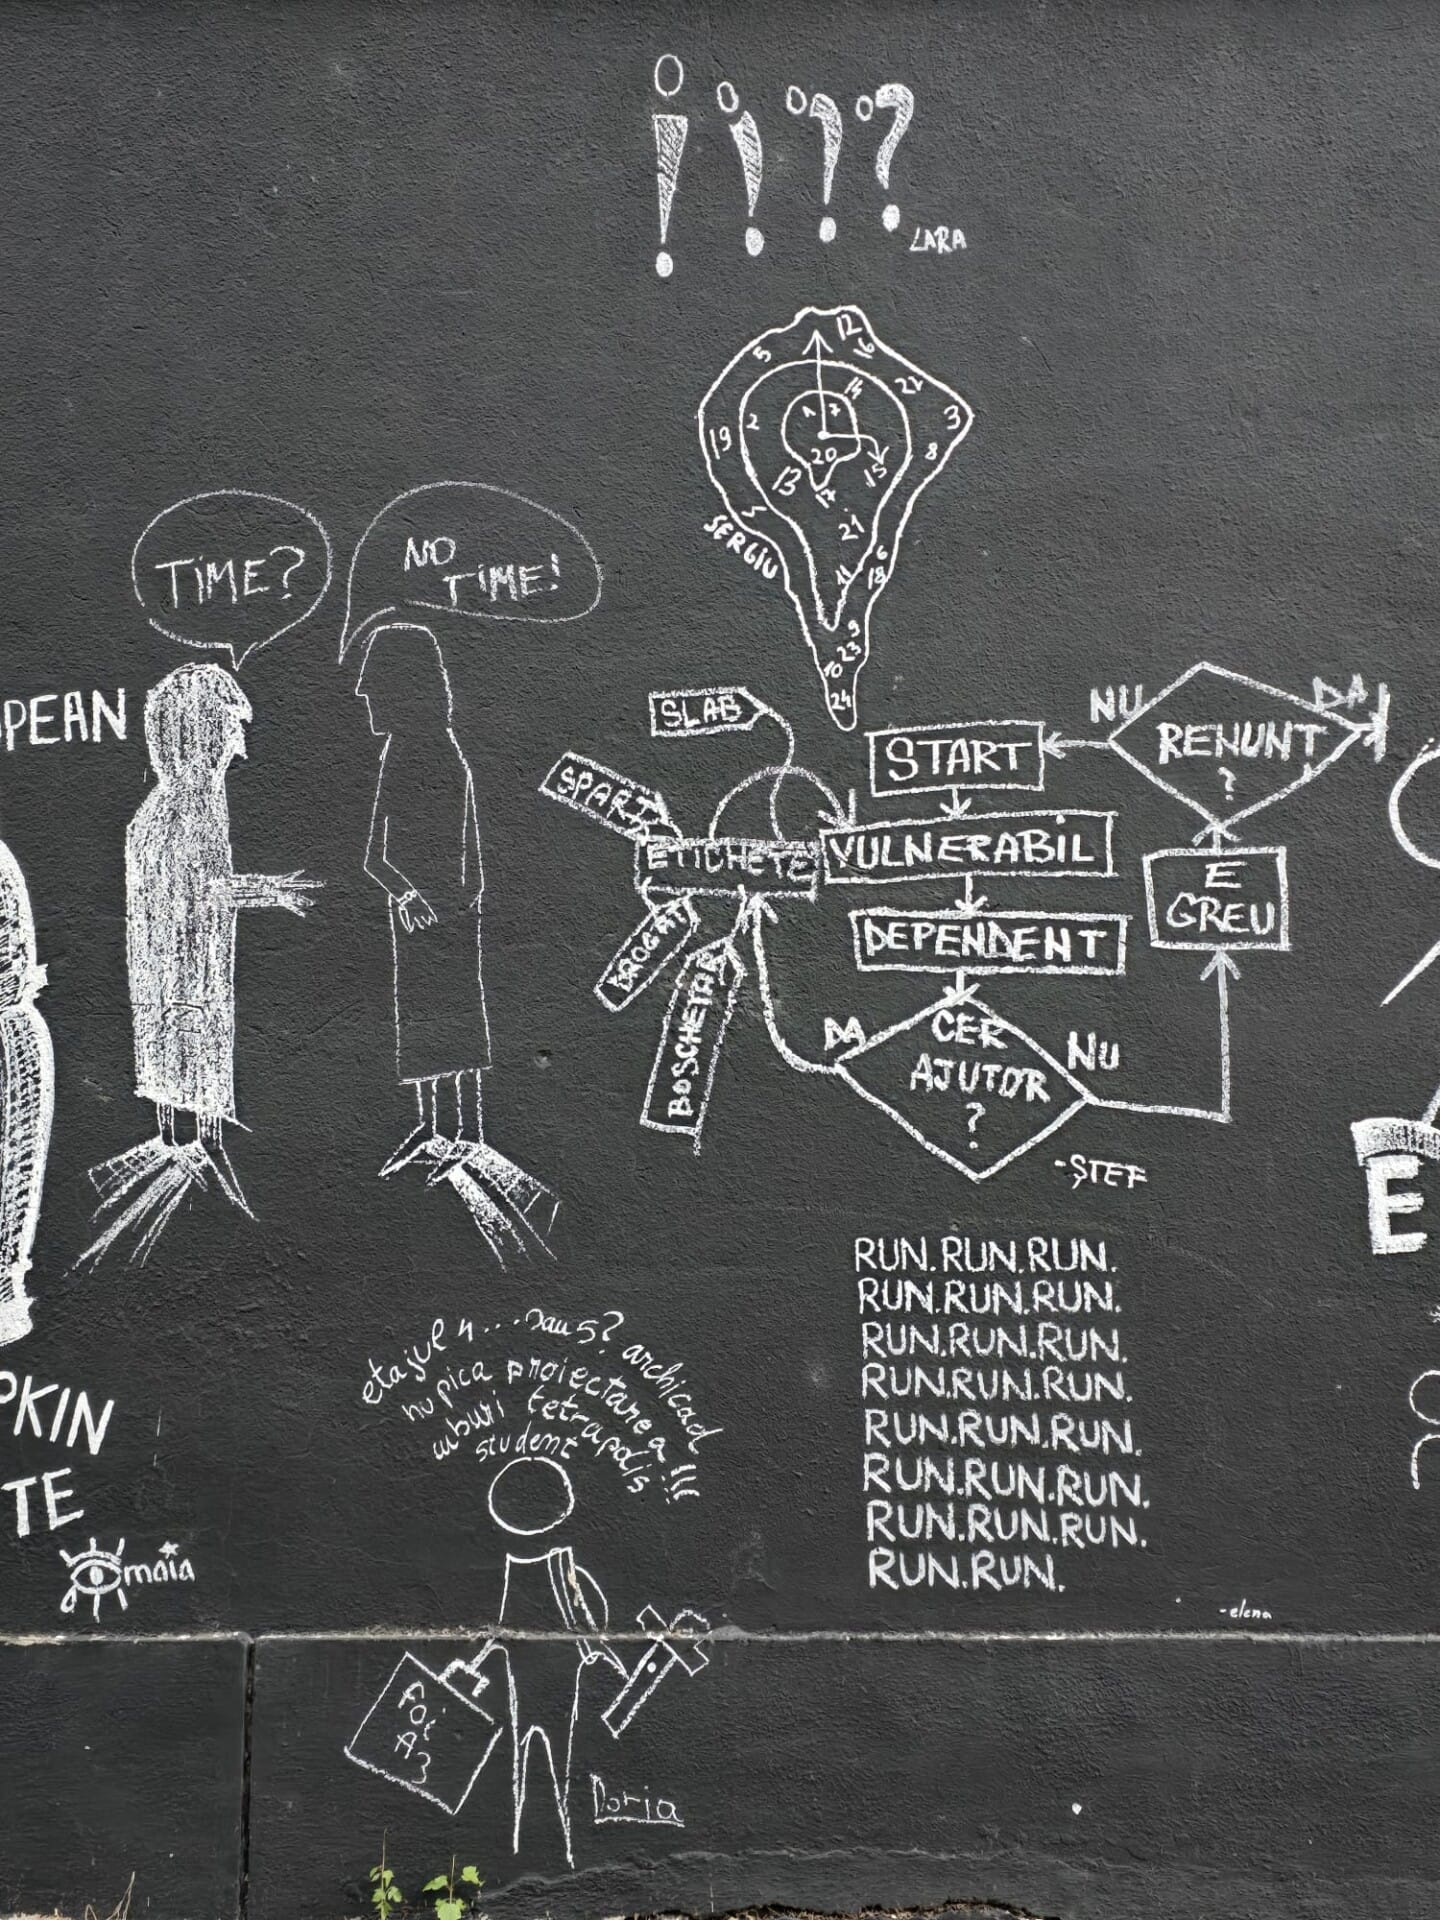 LARA
12
5
16
22
14
1 7
3
19
2
8
20
13
15
17
SERGIU
21
6
11
18
9
23
10
24
TIME?
NO
TIME!
PEAN
SLAB
START
NU
RENUNT
?
DA
SPART
ETICHETE
VULNERABIL
E
GREU
DROGAT
BOSCHETAR
DEPENDENT
DA
CER
AJUTOR
?
NU
-ȘTEF
RUN.RUN.RUN.
RUN.RUN.RUN.
RUN.RUN.RUN.
RUN.RUN.RUN.
RUN.RUN.RUN.
RUN.RUN.RUN.
RUN.RUN.RUN.
RUN.RUN.
-elena
E
PKIN
TE
maia
etajul 4...sau 5? archicad
nu pica proiectarea !!!
cuburi tetrapolis
student
FOI
A3
Doria